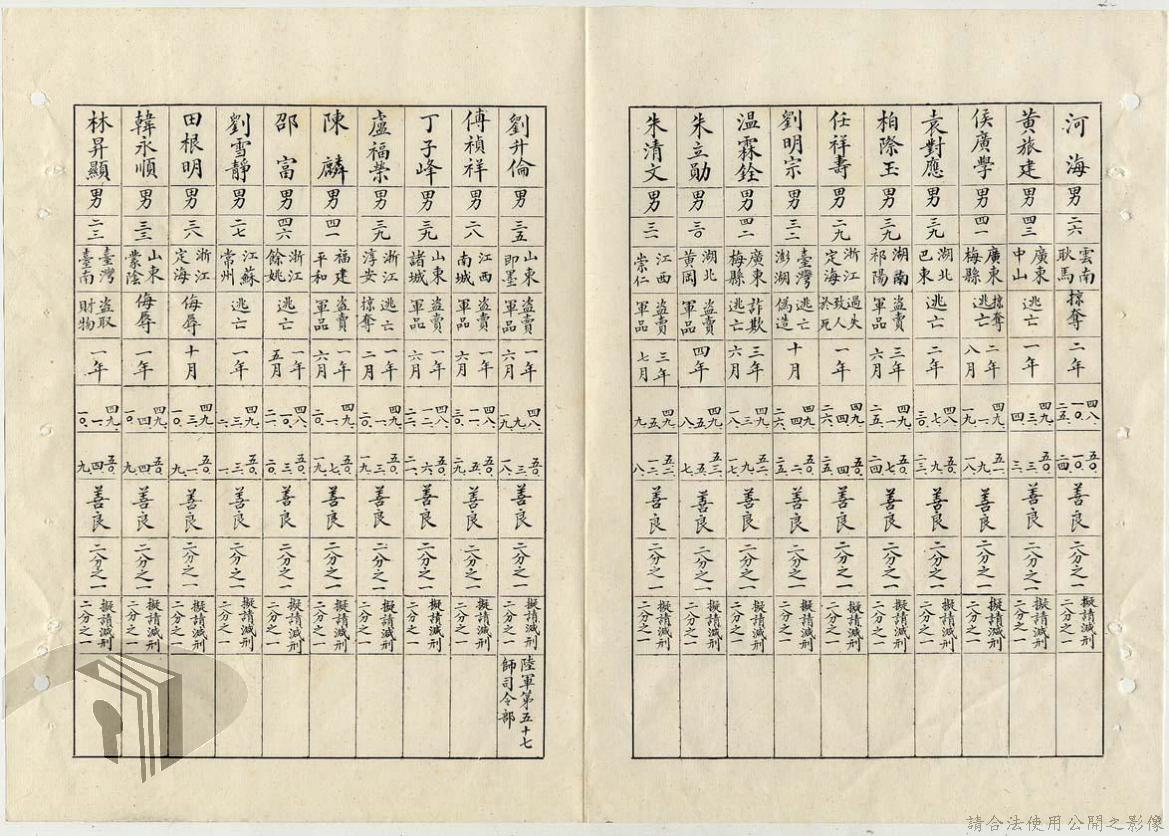 河海 男 二六 雲南耿馬 掠奪 二年 四八.一〇.二五. 五〇.一〇.二四. 善良 二分之一 擬請減刑二分之一
黃旅建 男 四三 廣東中山 逃亡 一年 四九.三.四 五〇.三.三. 善良 二分之一 擬請減刑二分之一
侯廣學 男 四一 廣東梅縣 掠奪逃亡 二年八月 四九.一.一九. 五一.九.一八. 善良 二分之一 擬請減刑二分之一
袁對應 男 三九 湖北巴東 逃亡 二年 善良 二分之一 擬請減刑二分之一
柏際玉 男 三九 湖南祁陽 盜賣軍品 三年六月 四九.一.二五. 五二.七.二四. 善良 二分之一 擬請減刑二分之一
任祥壽 男 二九 浙江定海 過失致人於死 一年 四九.四.二六. 五〇.四.二五. 善良 二分之一 擬請減刑二分之一
劉明宗 男 三二 臺灣澎湖 逃亡偽造 十月 四九.四.二六. 五〇.二.二五. 善良 二分之一 擬請減刑二分之一
温霖銓 男 四二 廣東梅縣 詐欺逃亡 三年六月 四九.三.一八. 五二.九.一七. 善良 二分之一 擬請減刑二分之一
朱立勛 男 三〇 湖北黃岡 盜賣軍品 四年 四九.五.八. 五三.五.七. 善良 二分之一 擬請減刑二分之一
朱清文 男 三一 江西崇仁 盜賣軍品 三年七月 四九.五.九. 五二.一二.八. 善良 二分之一 擬請減刑二分之一
劉升倫 男 三五 山東即墨 盜賣軍品 一年六月 四八.九.一九. 五〇.三.一八. 善良 二分之一 擬請減刑二分之一 陸軍第五十七師司令部
傅禎祥 男 二八 江西南城 盜賣軍品 一年六月 四八.一一.三〇. 五〇.五.二九. 善良 二分之一 擬請減刑二分之一
丁子峰 男 三九 山東諸城 盜賣軍品 一年六月 四八.一二.二二. 五〇.六.二一. 善良 二分之一 擬請減刑二分之一
盧福榮 男 三九 浙江淳安 逃亡掠奪 一年二月 四九.一.二〇. 五〇.三.一九. 善良 二分之一 擬請減刑二分之一
陳麟 男 四一 福建平和 盜賣軍品 一年六月 四九.一.二〇. 五〇.七.一九. 善良 二分之一 擬請減刑二分之一
邵富 男 四六 浙江餘姚 逃亡 一年五月 四八.一〇.二一. 五〇.三.二〇. 善良 二分之一 擬請減刑二分之一
劉雪靜 男 二七 江蘇常州 逃亡 一年 四九.三.二. 五〇.三.一. 善良 二分之一 擬請減刑二分之一
田根明 男 二八 浙江定海 侮辱 十月 四九.三.一〇. 五〇.一.九. 善良 二分之一 擬請減刑二分之一
韓永順 男 三三 山東蒙陰 侮辱 一年 四九.四.一〇. 五〇.四.九. 善良 二分之一 擬請減刑二分之一
林昇顯 男 二三 臺灣臺南 盜取財物 一年 五〇.四.九. 善良 二分之一 擬請減刑二分之一
請合法使用公開之影像